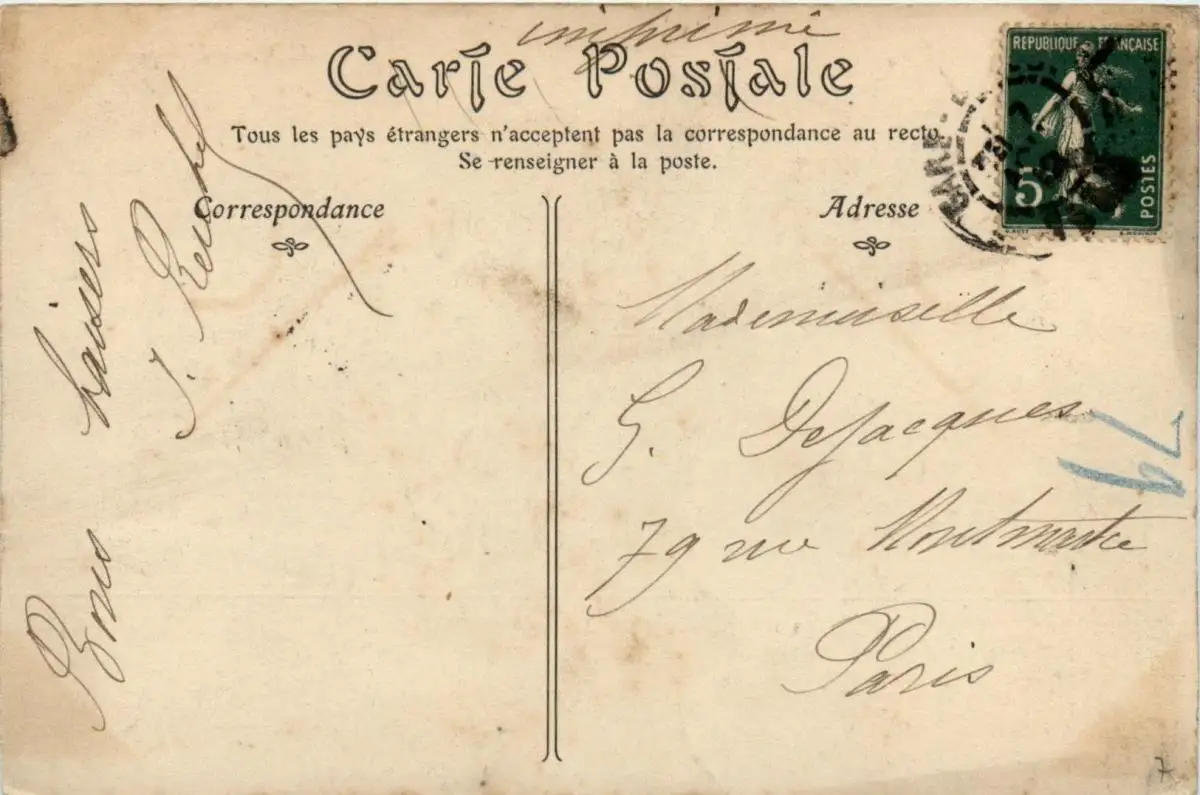 imprimé
Carte Postale
Tous les pays étrangers n'acceptent pas la correspondance au recto.
Se renseigner à la poste.
Correspondance
Adresse
RÉPUBLIQUE FRANÇAISE
5
POSTES
GARE
Bons baisers
J.
Mademoiselle
G. DeJacques
79 rue Montmartre
Paris
7